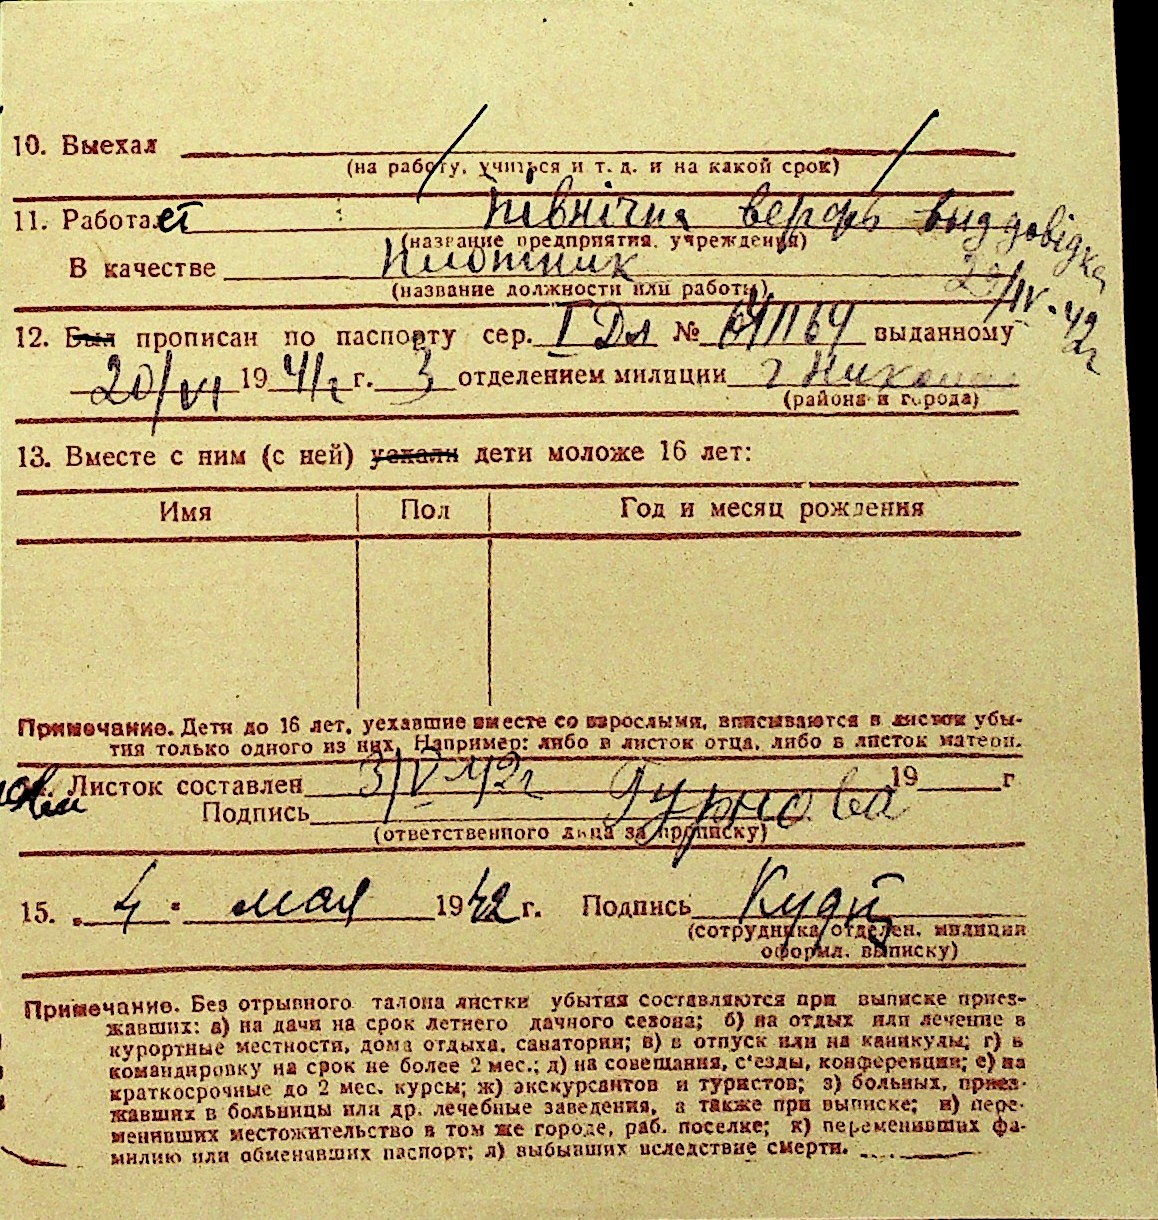 10. Выехал
(на работу, учиться и т. д. и на какой срок)
11. Работает Північна верфь выд довідка
(название предприятия, учреждения)
29/IV-42 г
В качестве Плотник
(название должности или работы)
12. Был прописан по паспорту сер. I Дл № 641164 выданному
20/VI 1941 г. 3 отделением милиции г Никол
(района и города)
13. Вместе с ним (с ней) уехали дети моложе 16 лет:
Имя Пол Год и месяц рождения
Примечание. Дети до 16 лет, уехавшие вместе со взрослыми, вписываются в листок убы-
тия только одного из них. Например: либо в листок отца, либо в листок матери.
Листок составлен 3/V 42 г 19 г
Подпись Гурнова
(ответственного лица за прописку)
15. „4" мая 1942 г. Подпись
(сотрудника отделен. милиции
оформл. выписку)
Примечание. Без отрывного талона листки убытия составляются при выписке приез-
жавших: а) на дачи на срок летнего дачного сезона; б) на отдых или лечение в
курортные местности, дома отдыха, санатории; в) в отпуск или на каникулы; г) в
командировку на срок не более 2 мес.; д) на совещания, с'езды, конференции; е) на
краткосрочные до 2 мес. курсы; ж) экскурсантов и туристов; з) больных, приез-
жавших в больницы или др. лечебные заведения, а также при выписке; и) пере-
менивших местожительство в том же городе, раб. поселке; к) переменивших фа-
милию или обменявших паспорт; л) выбывших вследствие смерти.